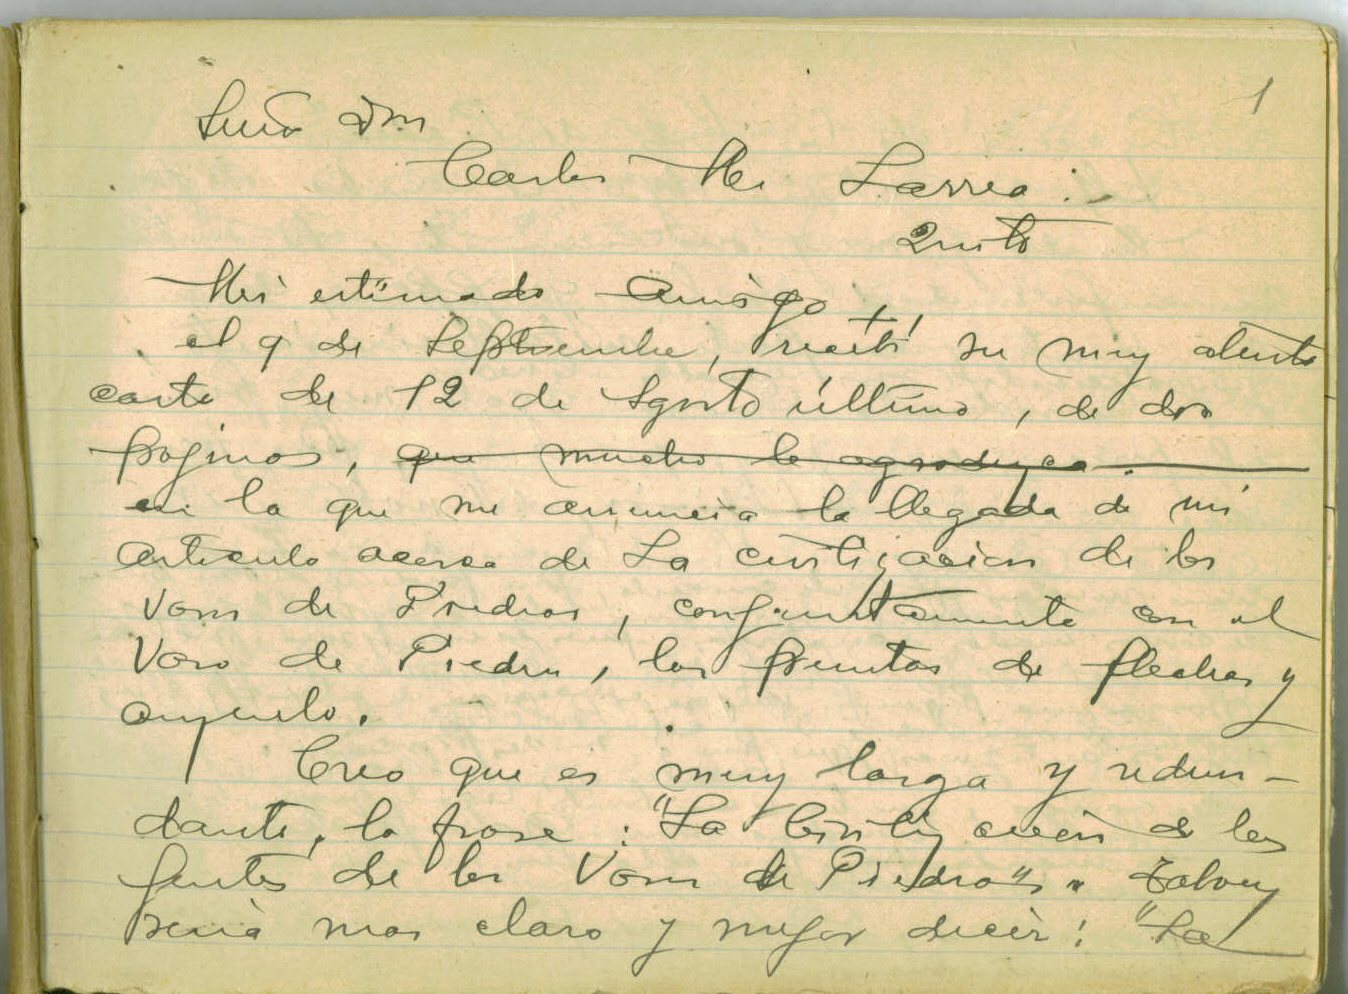 1
Señor Don
Carlos M. Larrea :
Quito
Mi estimado Amigo,
el 9 de Septiembre, recibí su muy atenta
carta de 12 de Agosto último, de dos
páginas, que mucho le agradezco.
en la que me anuncia la llegada de mi
artículo acerca de La civilización de los
Vasos de Piedra, conjuntamente con el
Vaso de Piedra, las puntas de flechas y
anzuelo.
Creo que es muy larga y redun-
dante, la frase : "La Civilización de las
gentes de los Vasos de Piedra". Talvez
sería mas claro y mejor decir: "La